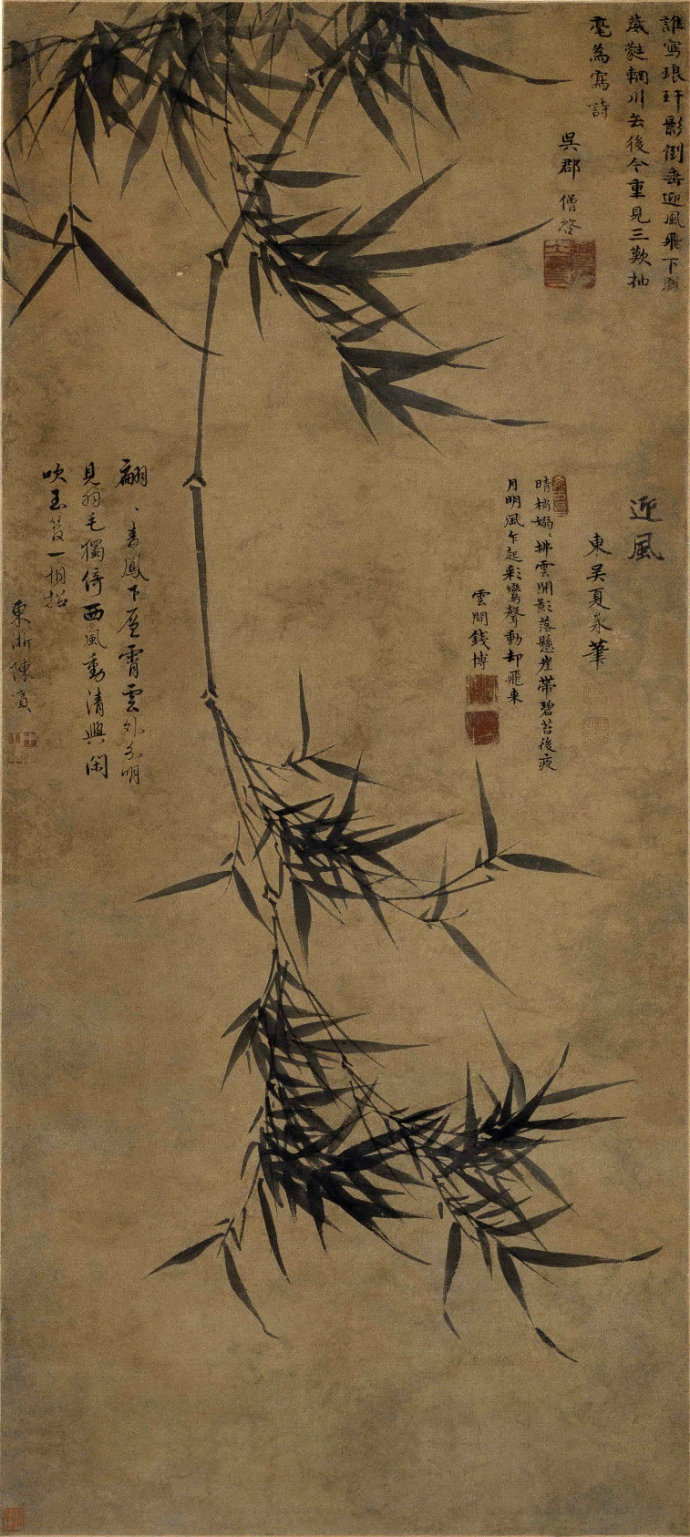 誰寫琅玕影倒垂迎風飛下
葳蕤輞川去後今重見三歎抽
毫為寫詩
吳郡 僧啓
迎風
東吳夏㫤筆
晴梢嫋、拂雲開影落懸崖帶碧苔後夜
月明風乍起彩鸞聲動却飛來
雲間錢博
翩、青鳳下層霄雲外分明
見羽毛獨倚西風動清興閑
吹玉笛一相招
東浙陳